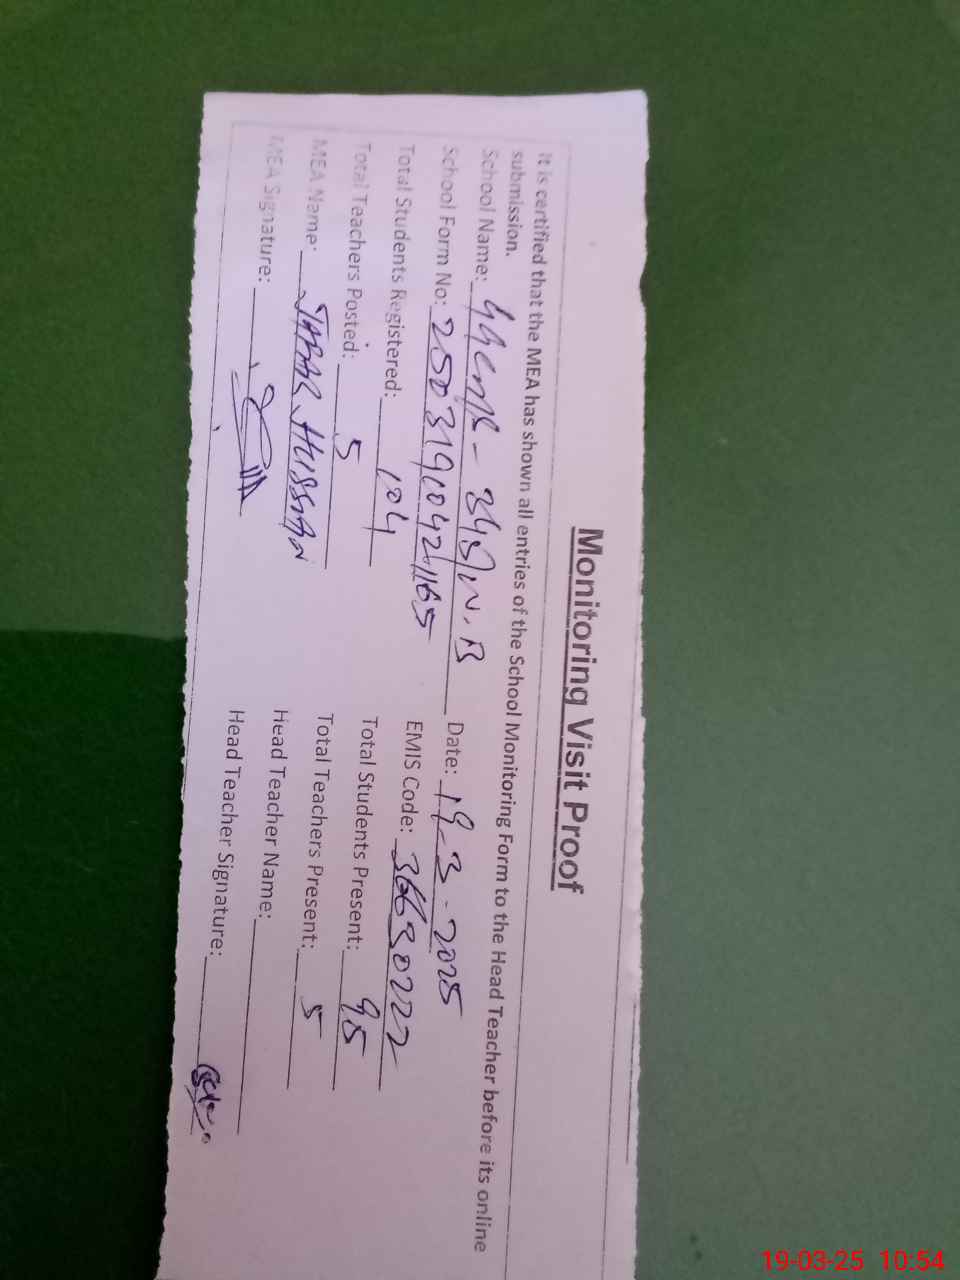 Monitoring Visit Proof
It is certified that the MEA has shown all entries of the School Monitoring Form to the Head Teacher before its online
submission.
School Name: GGCMR - 345/W.B Date: 19-3-2025
School Form No: EMIS Code: 36630222
Total Students Registered: 104 Total Students Present: 95
Total Teachers Posted: 5 Total Teachers Present: 5
MEA Name: HUSSAIN Head Teacher Name:
MEA Signature: Head Teacher Signature:
19-03-25 10:54